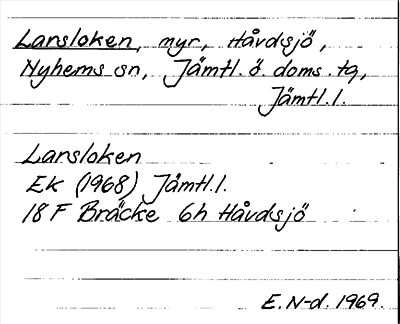 Lansloken, myr, Håvdsjö,
Nyhems sn, Jämtl. ö. doms. tg,
Jämtl. l.
Lansloken
Ek (1968) Jämtl. l.
18 F Bräcke 6h Håvdsjö
E. N-d. 1969.